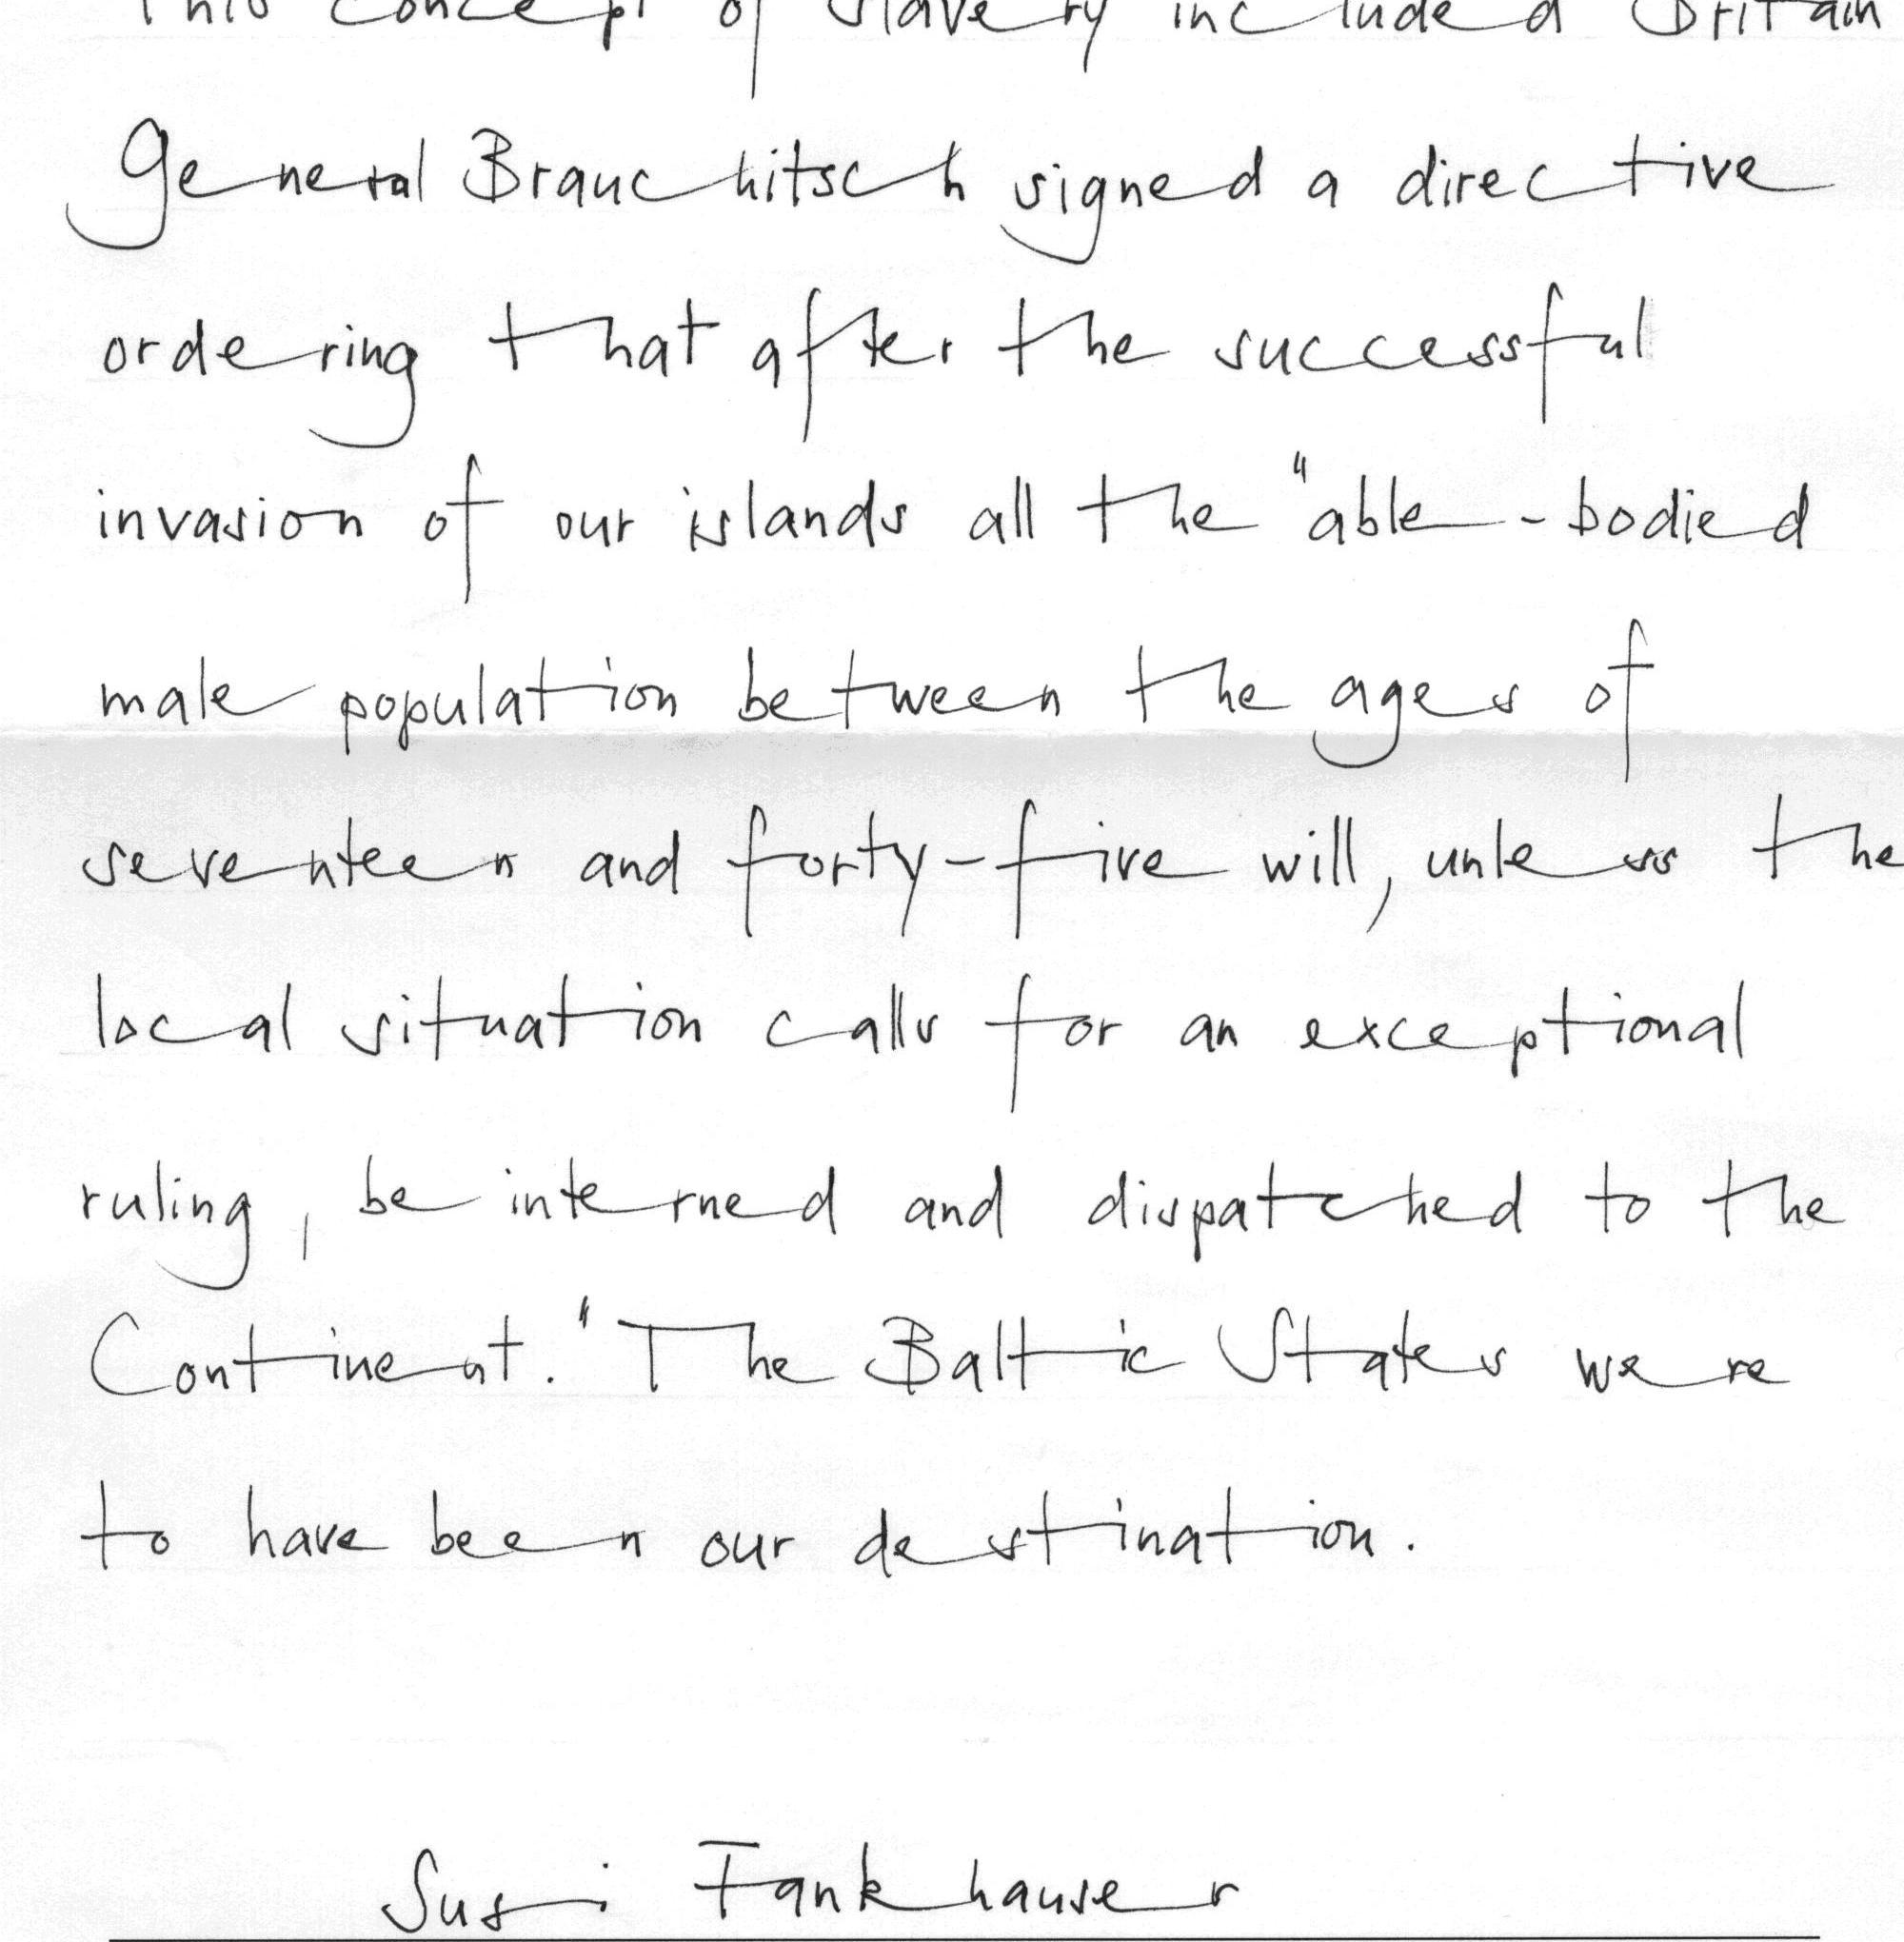 This concept of slavery included Britain
General Brauchitsch signed a directive
ordering that after the successful
invasion of our islands all the "able-bodied
male population between the ages of
seventeen and forty-five will, unless the
local situation calls for an exceptional
ruling, be interned and dispatched to the
Continent." The Baltic States were
to have been our destination.
Susi Fankhauser